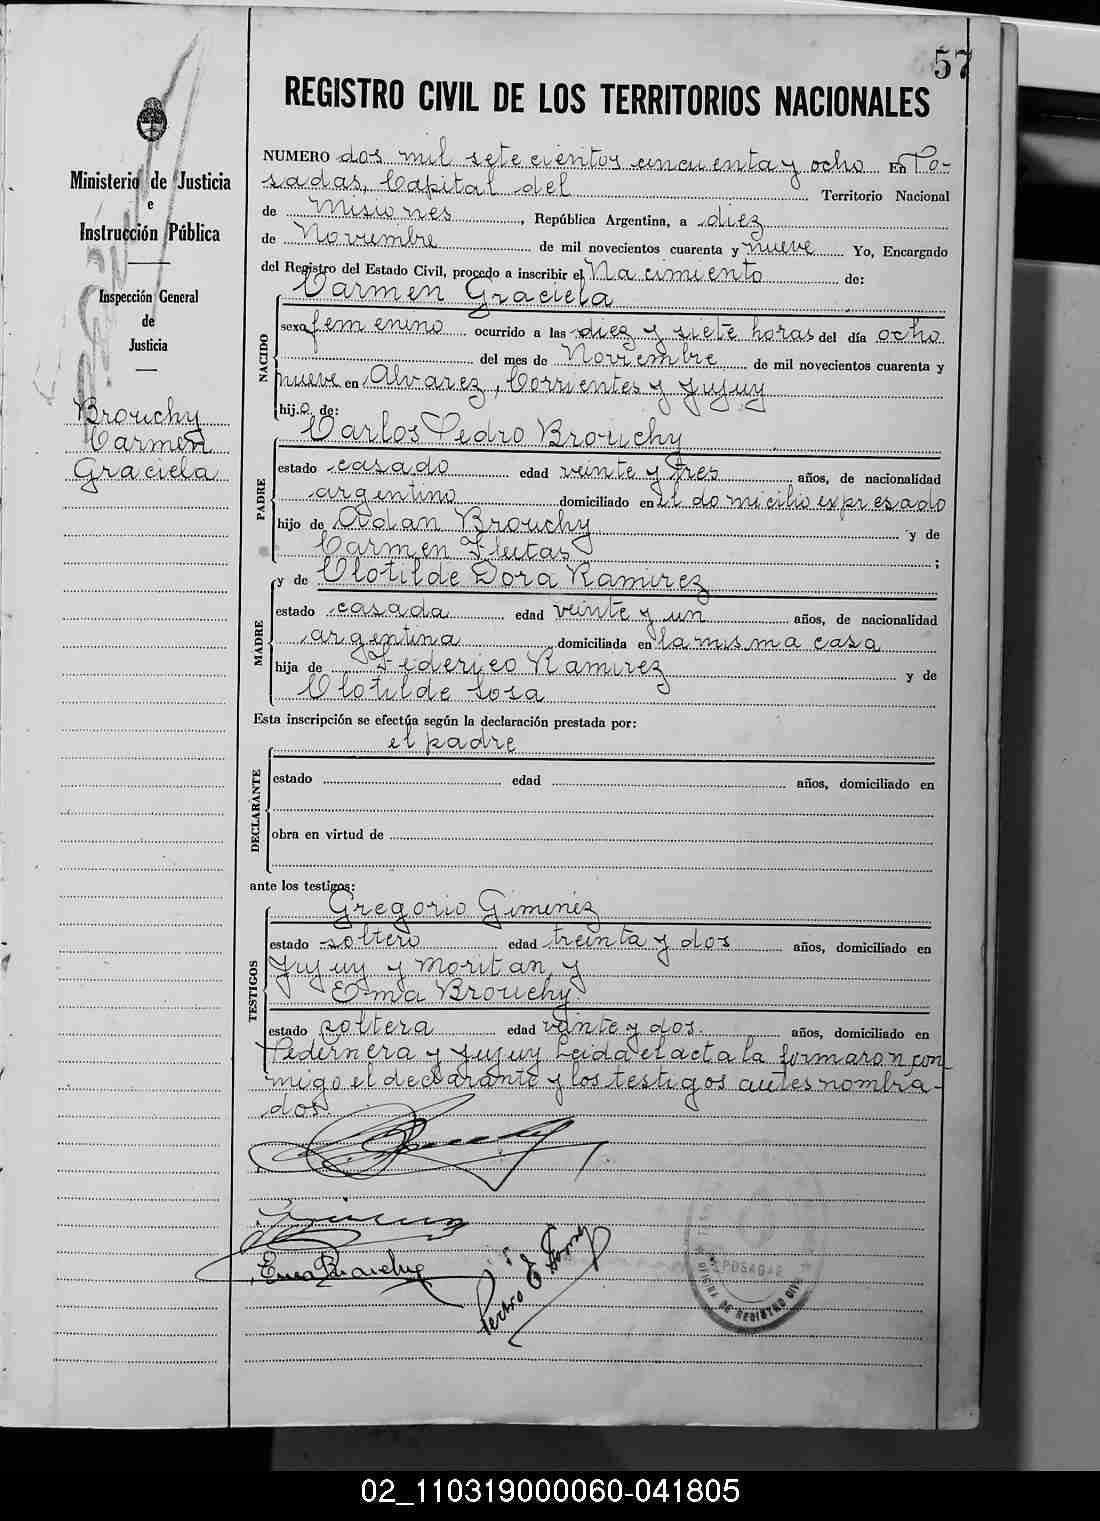 57
REGISTRO CIVIL DE LOS TERRITORIOS NACIONALES
Ministerio de Justicia
e
Instrucción Pública
Inspección General
de
Justicia
Brouchy
Carmen
Graciela
NUMERO dos mil sete cientos cincuenta y ocho En Po-
sadas, Capital del Territorio Nacional
de Misiones, República Argentina, a diez
de Noviembre de mil novecientos cuarenta y nueve Yo, Encargado
del Registro del Estado Civil, procedo a inscribir el Nacimiento de:
Carmen Graciela
NACIDO
sexo femenino ocurrido a las diez y siete horas del día ocho
del mes de Noviembre de mil novecientos cuarenta y
nueve en Alvarez, Corrientes y Jujuy
hij.a de:
Carlos Pedro Brouchy
PADRE
estado casado edad veinte y tres años, de nacionalidad
argentino domiciliado en el domicilio expresado
hijo de Adan Brouchy y de
Carmen Fleitas ;
y de Clotilde Dora Ramirez
MADRE
estado casada edad veinte y un años, de nacionalidad
argentina domiciliada en la misma casa
hija de Federico Ramirez y de
Clotilde Sosa
Esta inscripción se efectúa según la declaración prestada por:
el padre
DECLARANTE
estado edad años, domiciliado en
obra en virtud de
ante los testigos:
Gregorio Gimenez
TESTIGOS
estado soltero edad treinta y dos años, domiciliado en
Jujuy y Moritan, y
Ema Brouchy
estado soltera edad veinte y dos. años, domiciliado en
Pedernera y Jujuy Leida el acta la formaron con
migo el declarante y los testigos antes nombra-
dos.
Ema Brouchy
Pedro E
POSADAS
OFICINA DE REGISTRO CIVIL
02_110319000060-041805